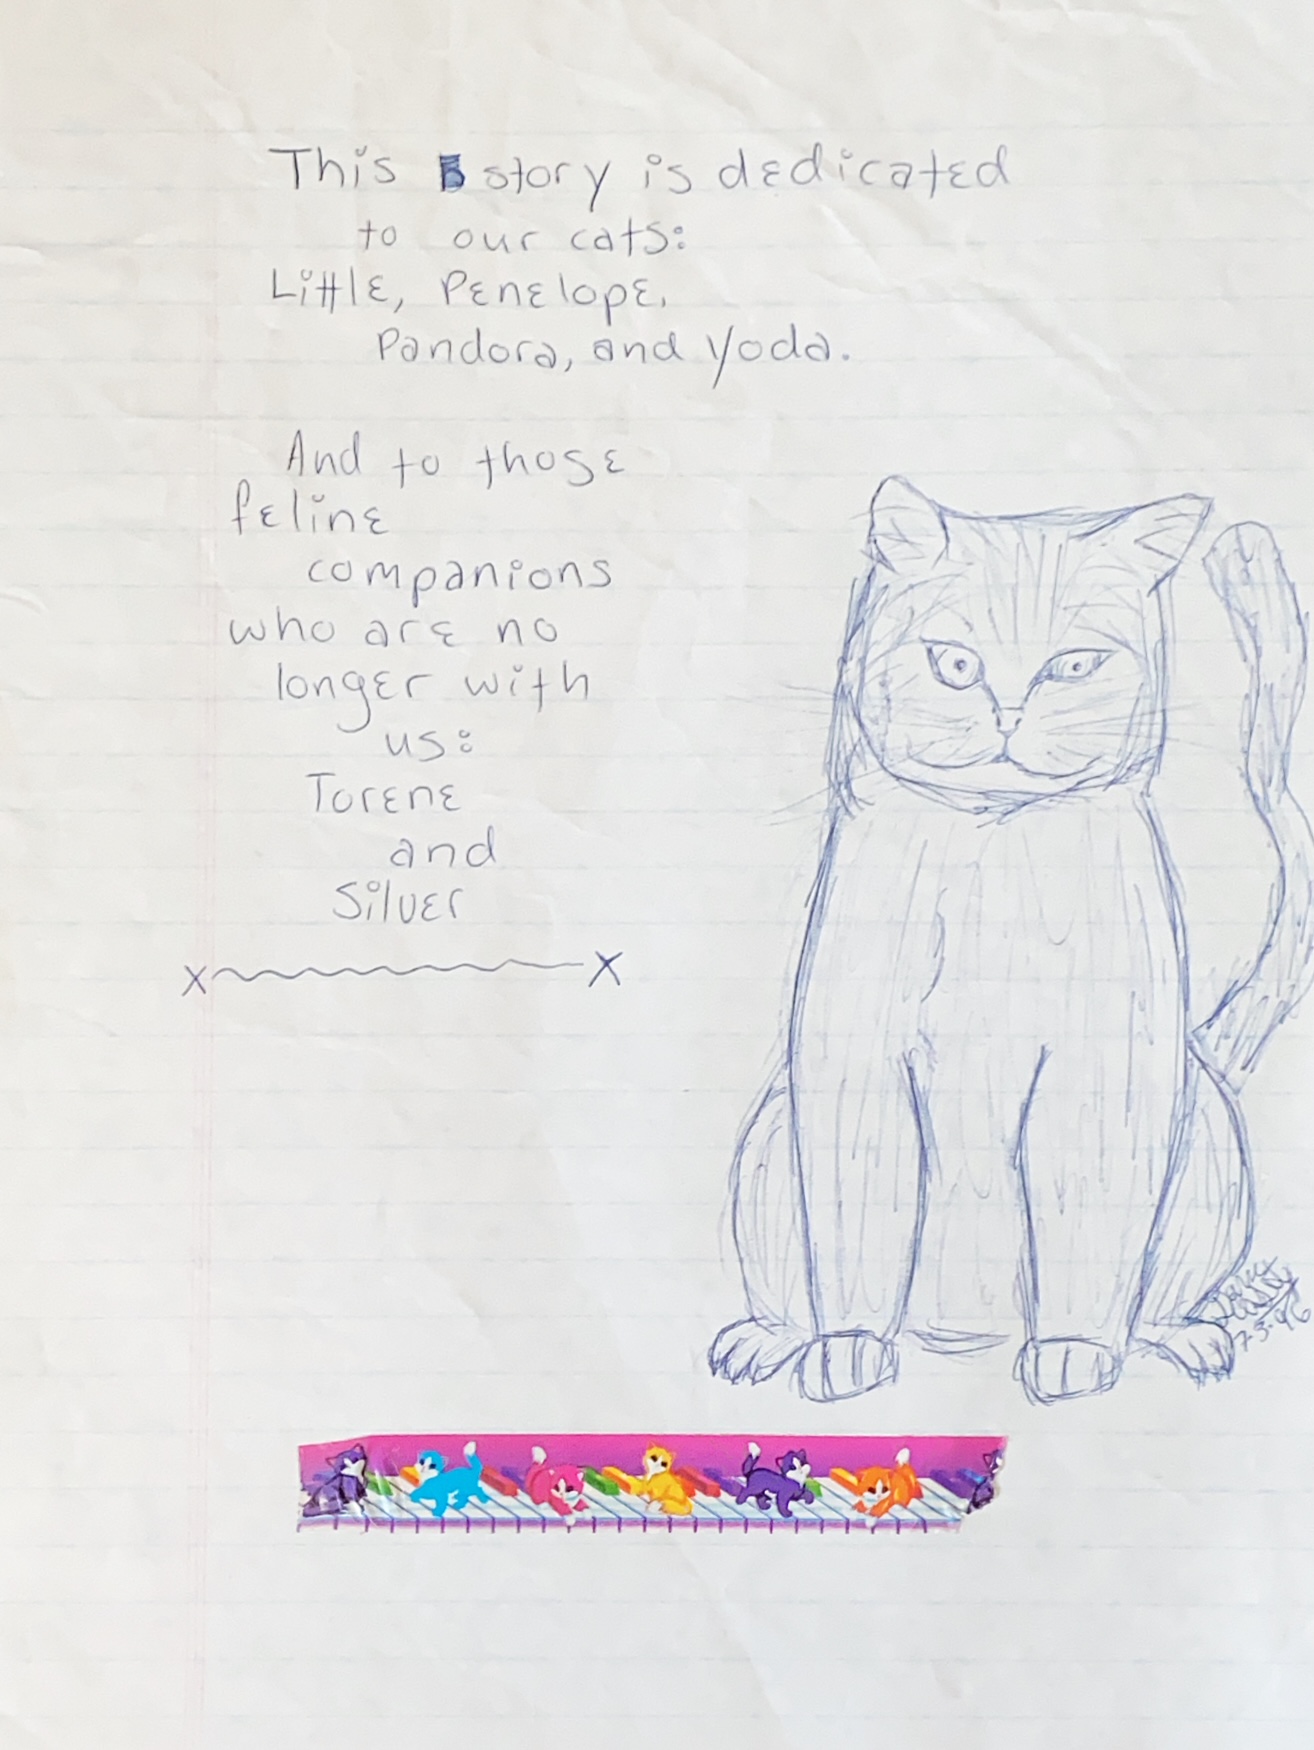 This story is dedicated
to our cats:
Little, Penelope,
Pandora, and Yoda.
And to those
feline
companions
who are no
longer with
us:
Torene
and
Silver
X X
7-3-96